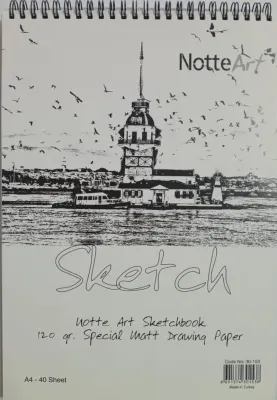 NotteArt
Sketch
Notte Art Sketchbook
120 gr. Special Matt Drawing Paper
A4 - 40 Sheet
Made in Turkey